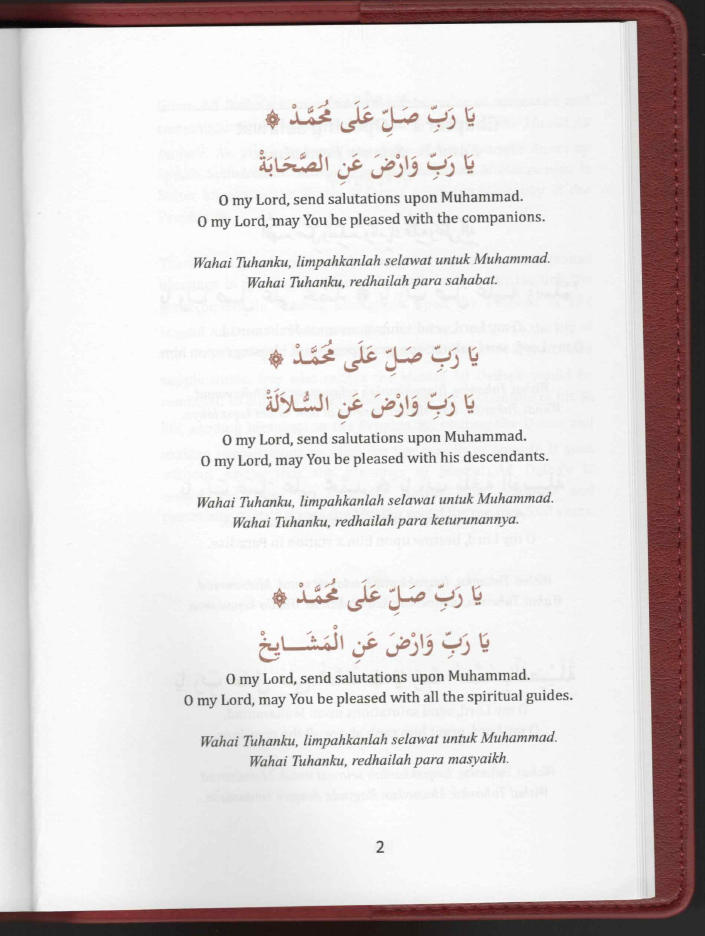 يَا رَبِّ صَلِّ عَلَى مُحَمَّدْ ۞
يَا رَبِّ وَارْضَ عَنِ الصَّحَابَةْ
O my Lord, send salutations upon Muhammad.
O my Lord, may You be pleased with the companions.
Wahai Tuhanku, limpahkanlah selawat untuk Muhammad.
Wahai Tuhanku, redhailah para sahabat.
يَا رَبِّ صَلِّ عَلَى مُحَمَّدْ ۞
يَا رَبِّ وَارْضَ عَنِ السُّلاَلَةْ
O my Lord, send salutations upon Muhammad.
O my Lord, may You be pleased with his descendants.
Wahai Tuhanku, limpahkanlah selawat untuk Muhammad.
Wahai Tuhanku, redhailah para keturunannya.
يَا رَبِّ صَلِّ عَلَى مُحَمَّدْ ۞
يَا رَبِّ وَارْضَ عَنِ الْمَشَـــايِخْ
O my Lord, send salutations upon Muhammad.
O my Lord, may You be pleased with all the spiritual guides.
Wahai Tuhanku, limpahkanlah selawat untuk Muhammad.
Wahai Tuhanku, redhailah para masyaikh.
2